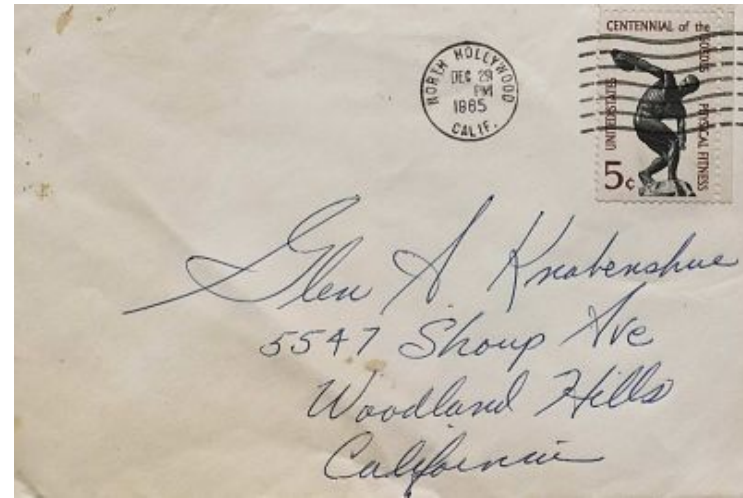 NORTH HOLLYWOOD
DEC 29
PM
1965
CALIF.
CENTENNIAL of the
SOKOLS PHYSICAL FITNESS
UNITED STATES
5c
Glen A Knabenshue
5547 Shoup Ave
Woodland Hills
California